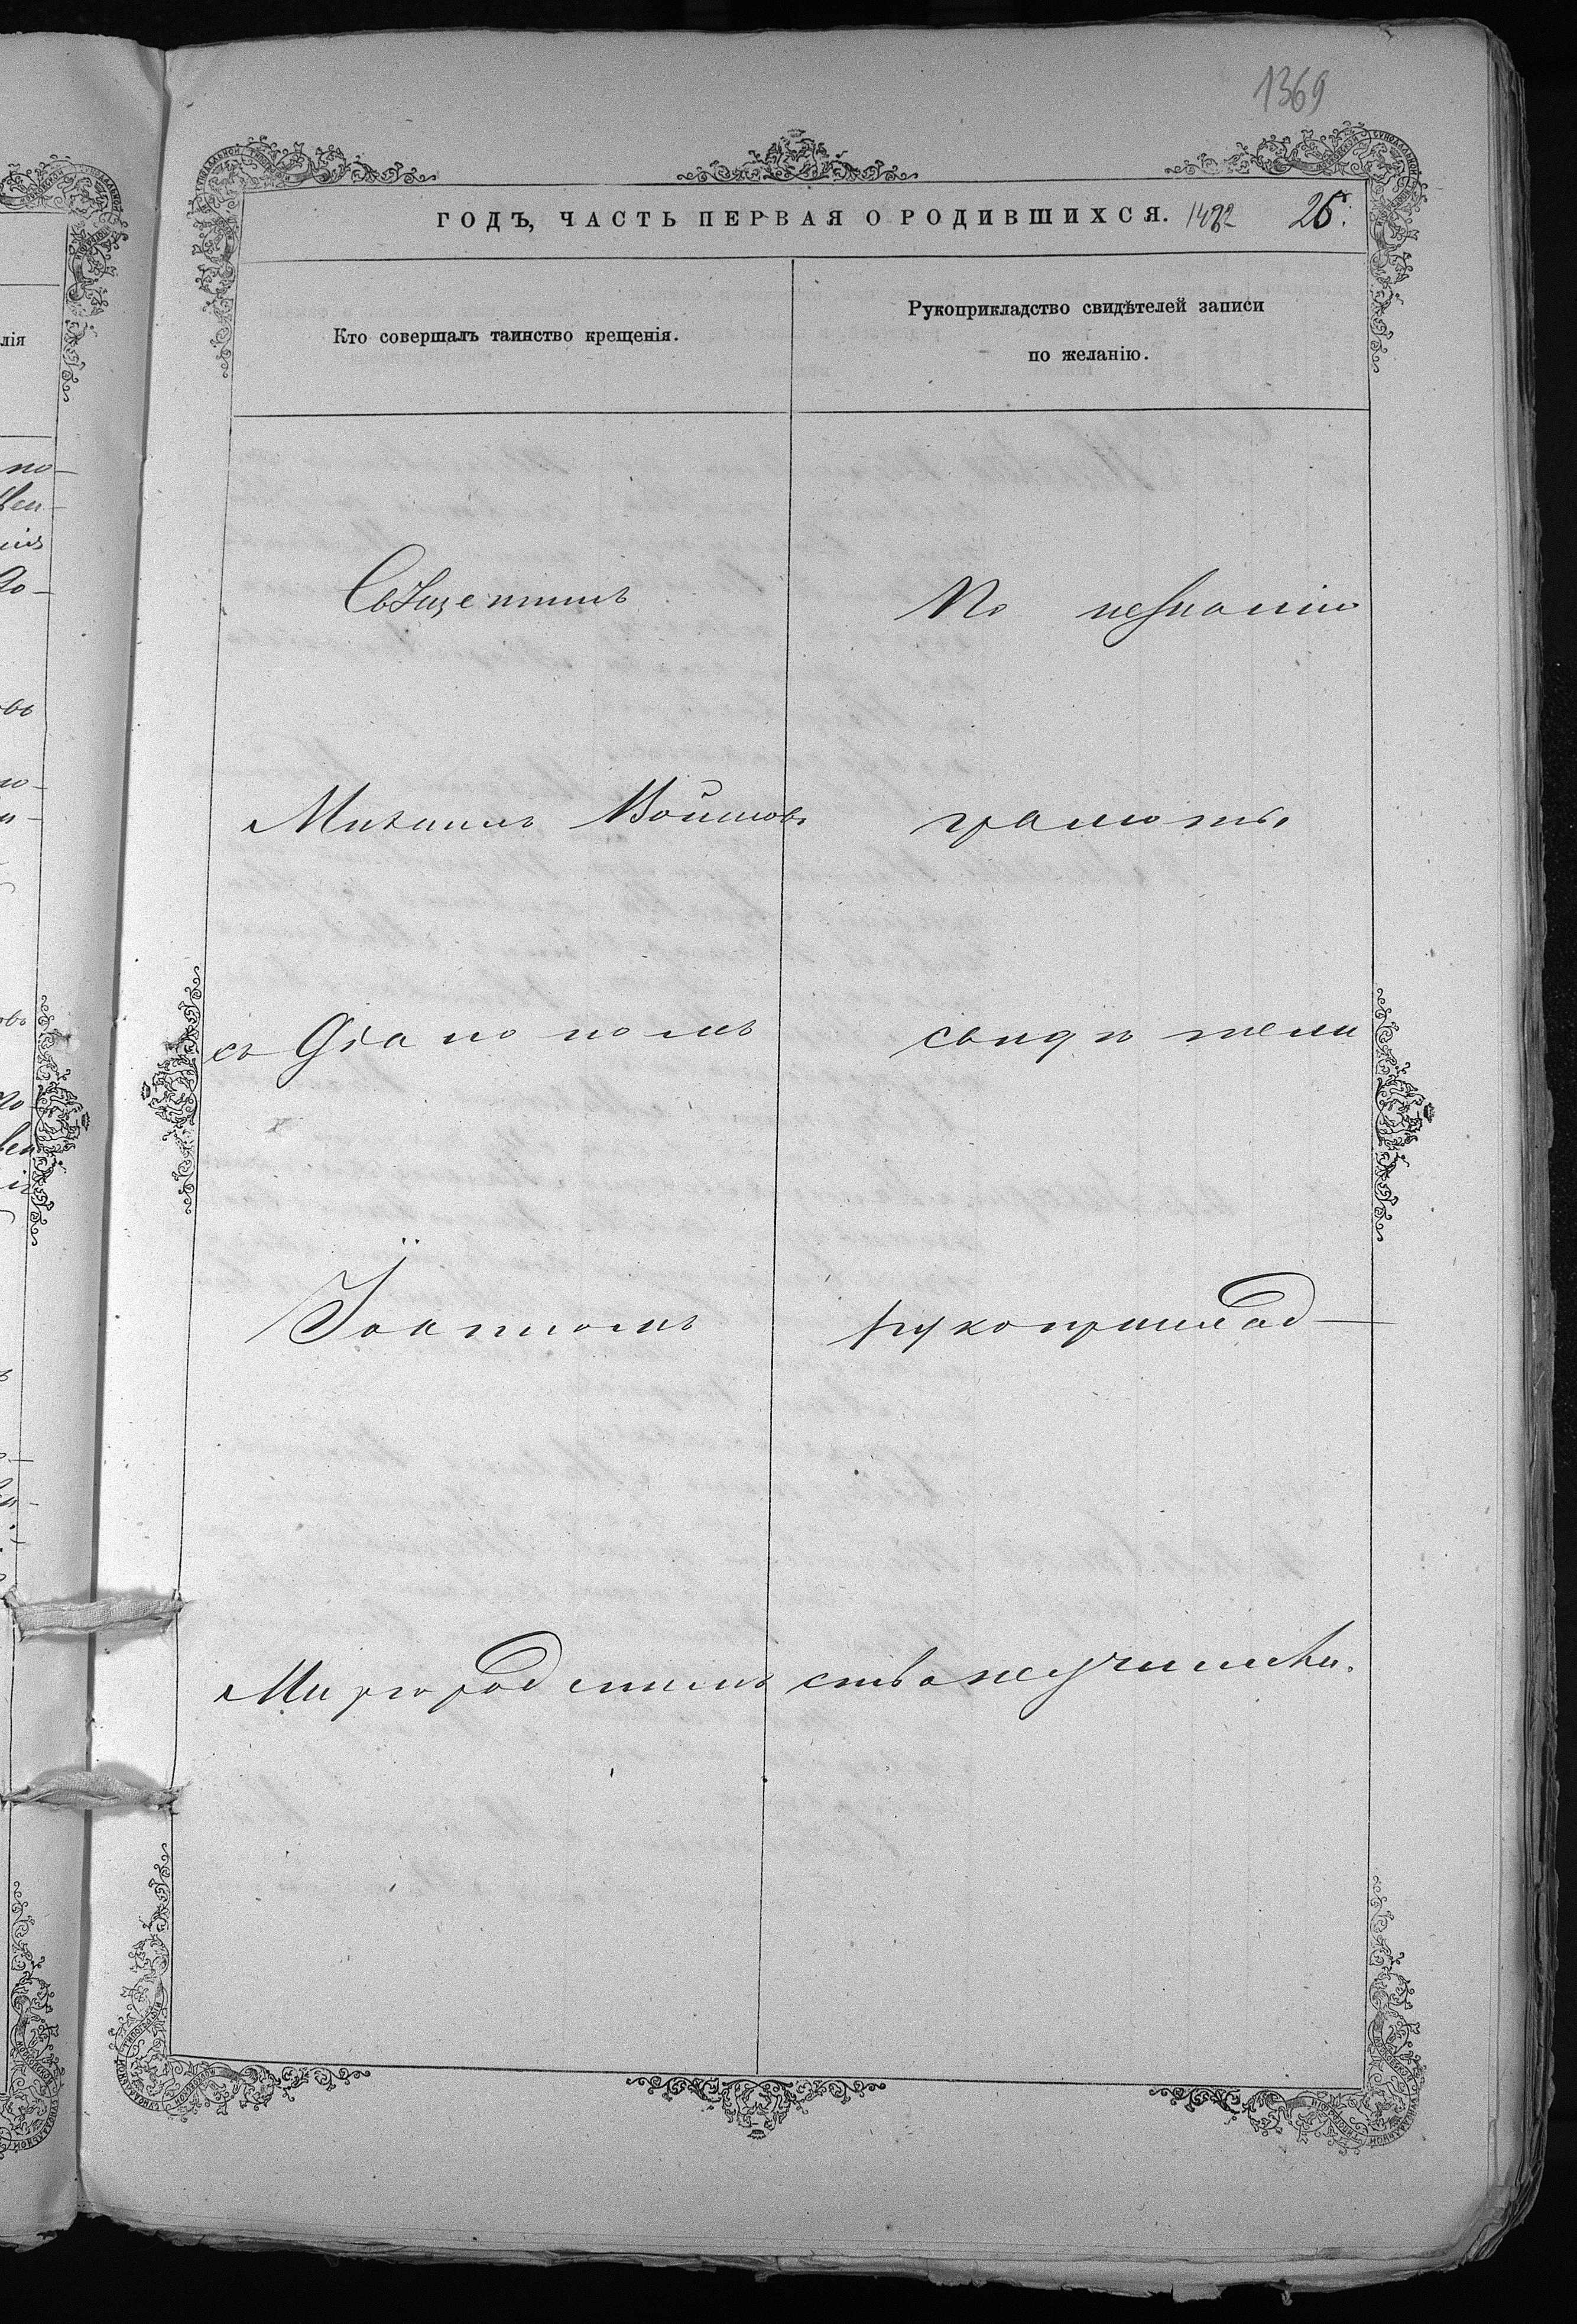 1369
ГОДЪ, ЧАСТЬ ПЕРВАЯ О РОДИВШИХСЯ. 26.
Кто совершалъ таинство крещенія.
Рукоприкладство свидѣтелей записи
по желанію.
Священникъ
Михаилъ Войновъ
съ Діакономъ
Іоанномъ
Миргородскимъ
По незнанію
грамоты
свидѣтели
рукоприклад-
ства неучинили.
лія